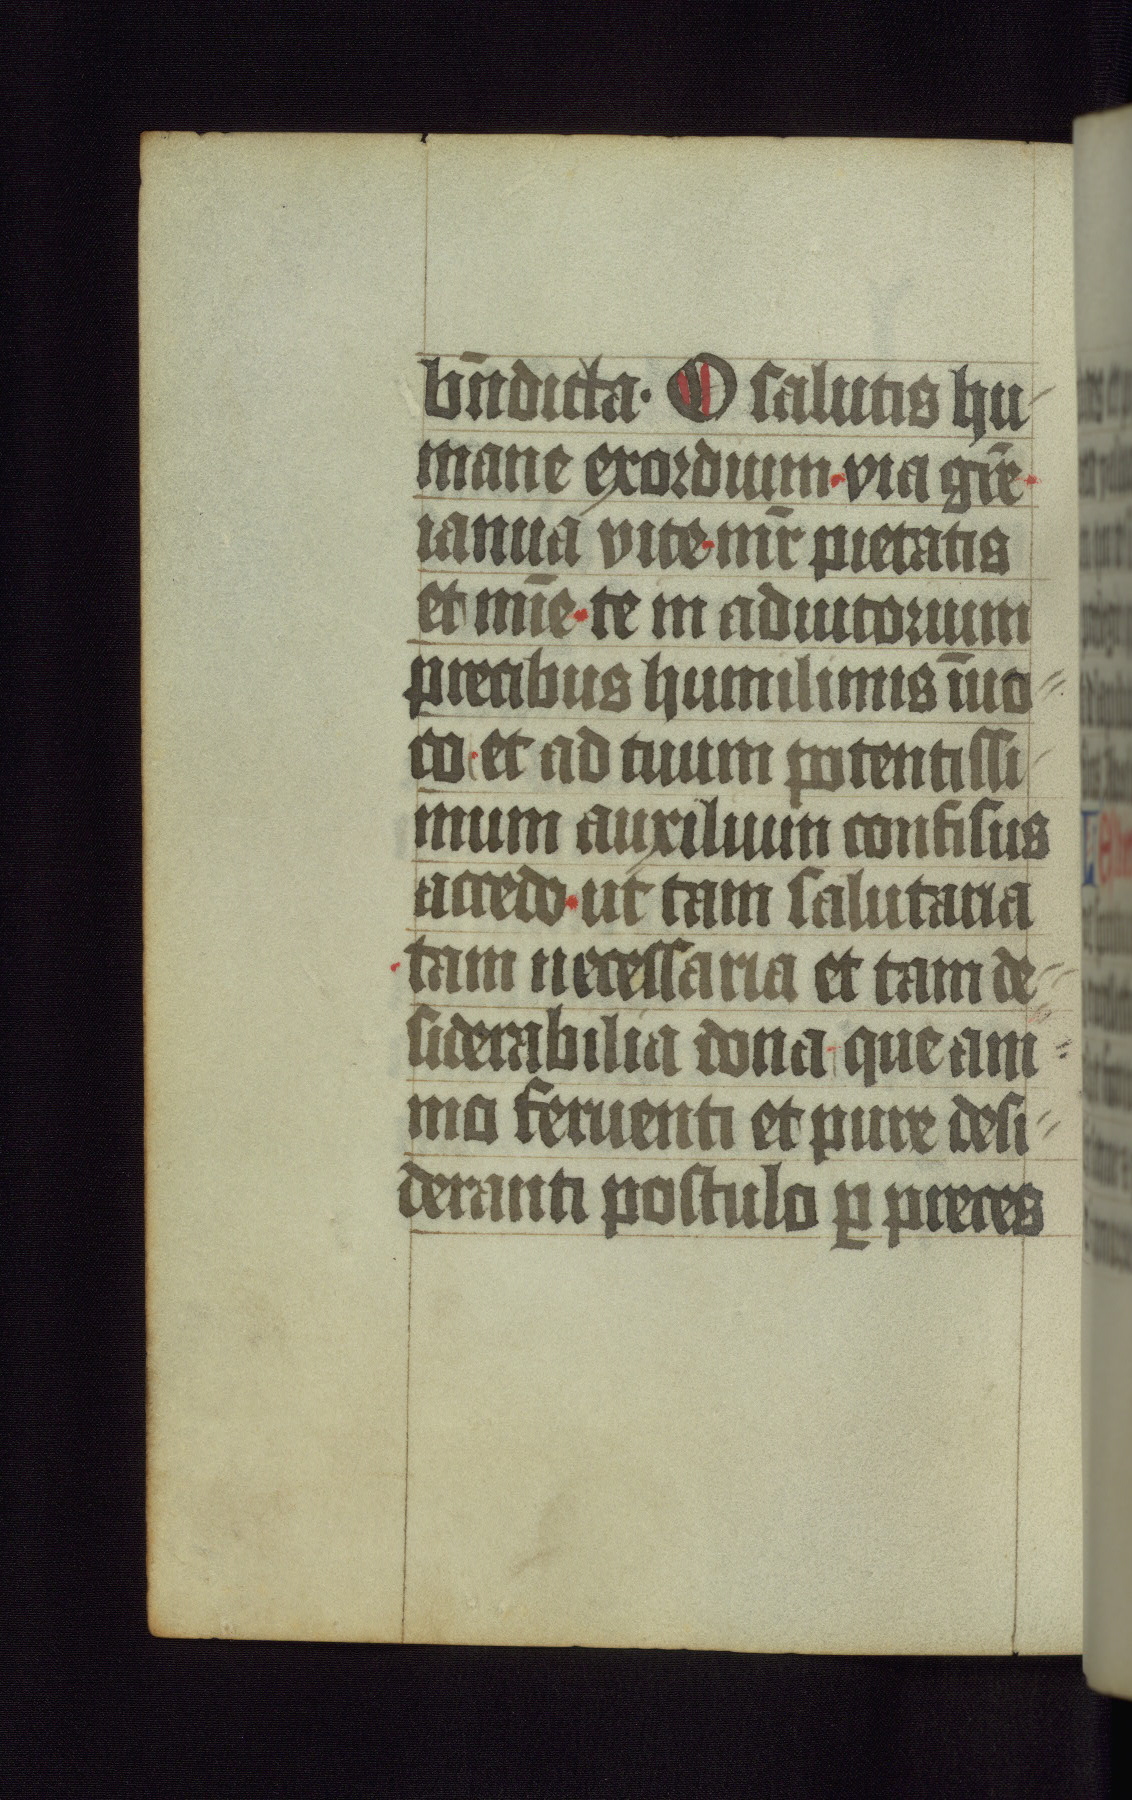 bn̄dicta · O salutis hu
mane exordium · via gr̄e ·
ianua vite · mr̄ pietatis
et mīe · te in adiutorium
precibus humilimis īuo
co · et ad tuum potentissi
mum auxilium confisus
accedo · ut tam salutaria
tam necessaria et tam de
siderabilia dona que ani
mo feruenti et pure desi
deranti postulo ꝑ preces